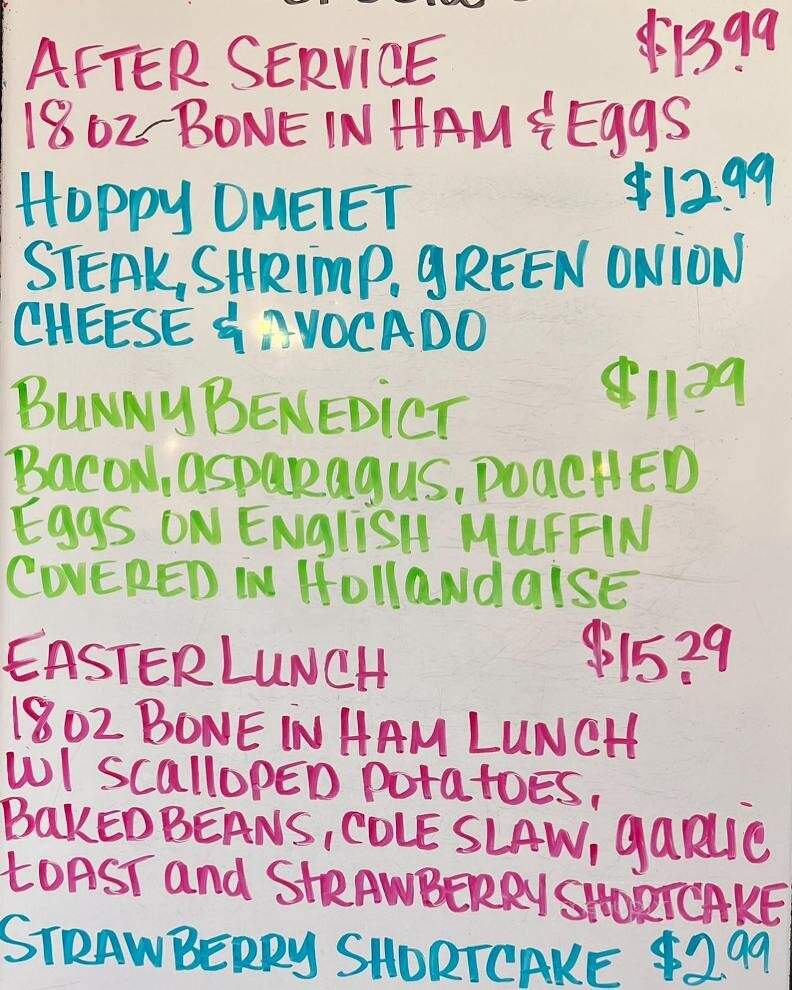 AFTER SERVICE $13.99
18 OZ BONE IN HAM & EGGS
HOPPY OMELET $12.99
STEAK, SHRIMP, GREEN ONION
CHEESE & AVOCADO
BUNNY BENEDICT $11.29
BACON, ASPARAGUS, POACHED
EGGS ON ENGLISH MUFFIN
COVERED IN HOLLANDAISE
EASTER LUNCH $15.29
18 OZ BONE IN HAM LUNCH
W/ SCALLOPED POTATOES,
BAKED BEANS, COLE SLAW, GARLIC
TOAST and STRAWBERRY SHORTCAKE
STRAWBERRY SHORTCAKE $2.99